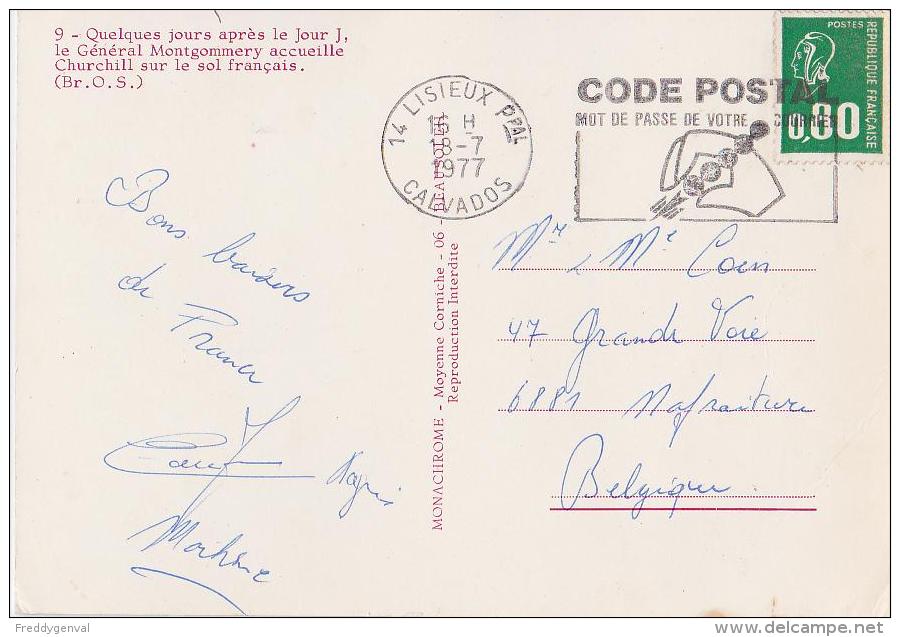 9 - Quelques jours après le Jour J,
le Général Montgommery accueille
Churchill sur le sol français.
(Br.O.S.)
14 LISIEUX PPAL
16 H
18-7
1977
CALVADOS
CODE POSTAL
MOT DE PASSE DE VOTRE COURRIER
POSTES
REPUBLIQUE FRANÇAISE
0,80
Bons baisers
de
France
Agnis
MONACHROME - Moyenne Corniche - 06 - BEAUSOLEIL
Reproduction Interdite
Mr & Me Coen
47 Grande Voie
6881 Nafraiture
Belgique
Freddygenval
www.delcampe.net